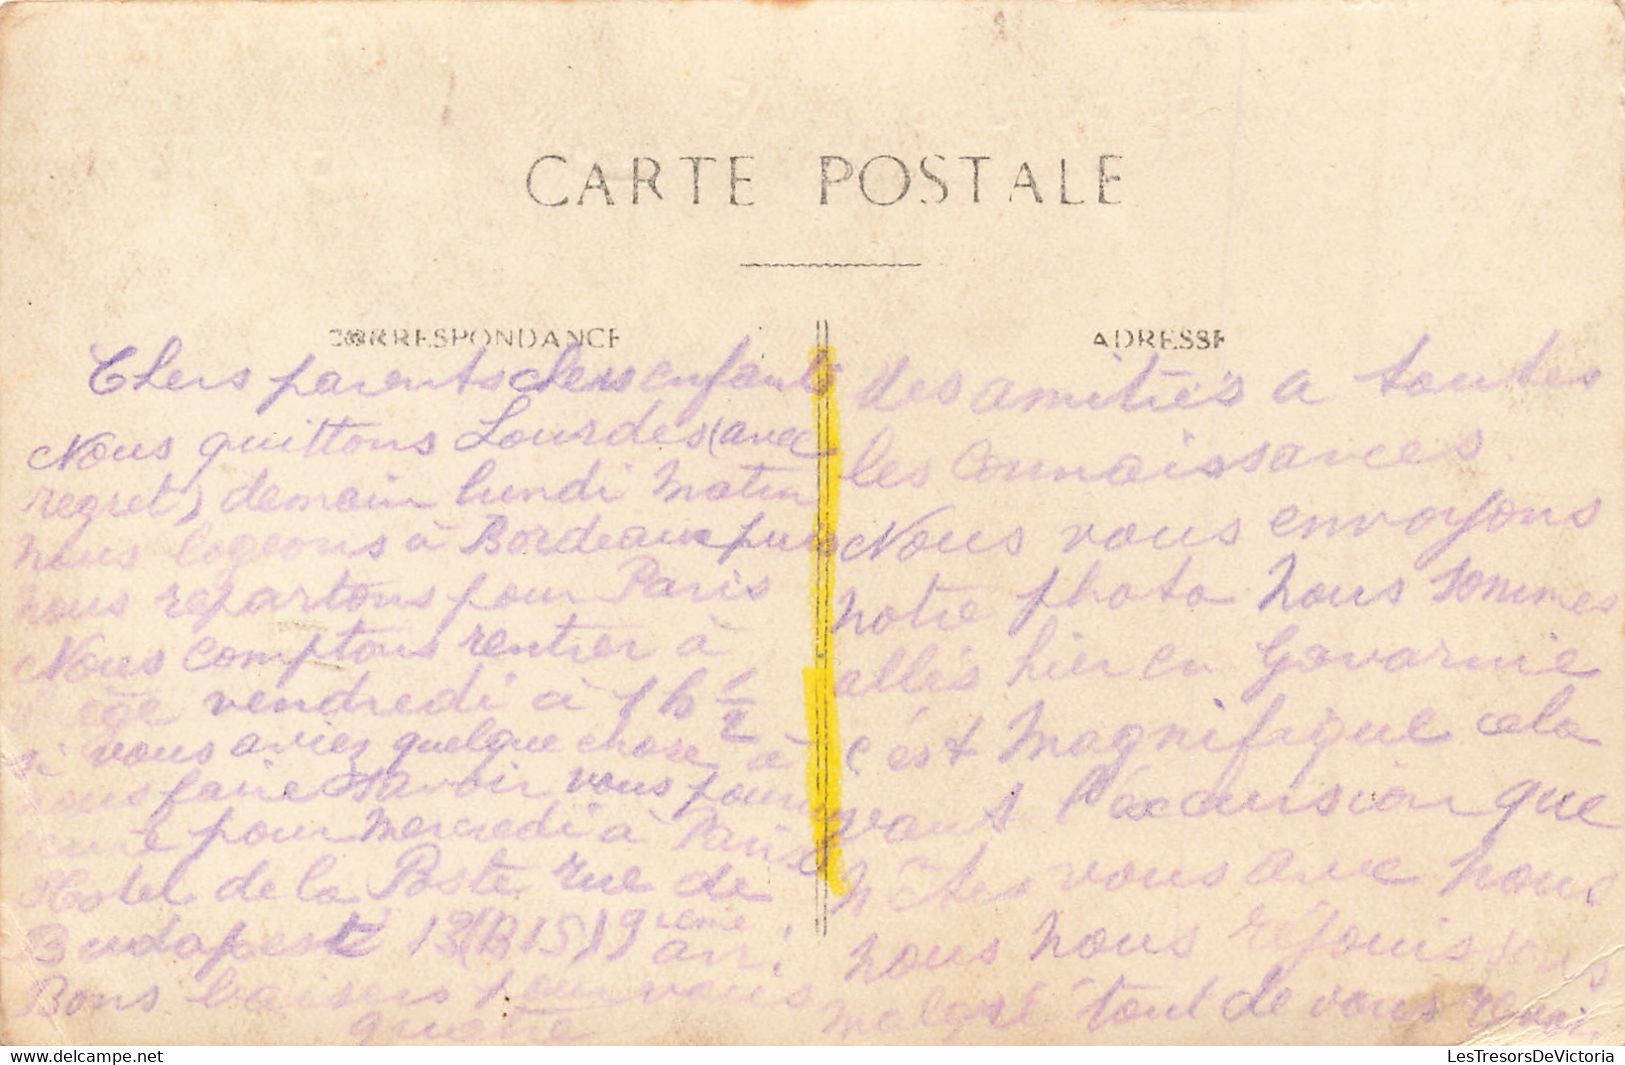 CARTE POSTALE
CORRESPONDANCE
ADRESSE
Chers parents chers enfants
Nous quittons Lourdes (avec
regret) demain lundi matin
nous logeons à Bordeaux puis
nous repartons pour Paris
Nous comptons rentrer à
vendredi à 1h 1/2
si vous aviez quelque chose à
nous faire savoir vous
pour Mercredi à Paris
Hotel de la Poste rue de
Budapest 13 (BIS) 9ieme arr.
Bons baisers pour vous
quatre
des amitiés a toutes
les connaissances.
Nous vous envoyons
notre photo nous sommes
allés hier en Gavarnie
c'est magnifique cela
vaut l'excursion que
n'êtes vous avec nous
nous nous réjouissons
malgré tout de vous revoir
LesTresorsDeVictoria